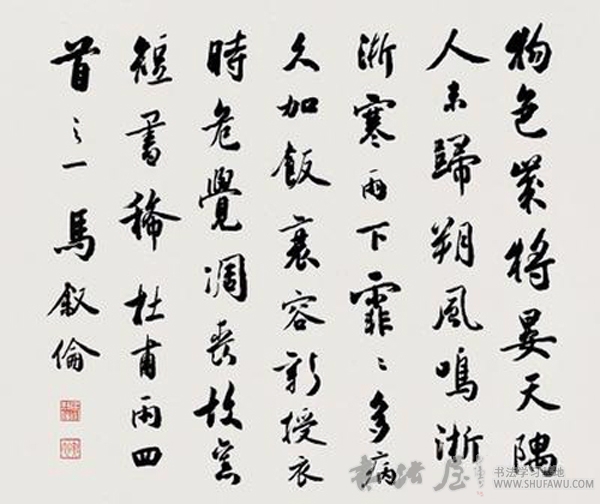 物色歲將晏天隅
人未歸朔風鳴淅
淅寒雨下霏〻多病
久加飯衰容新授衣
時危覺凋喪故舊
短書稀杜甫雨四
首之一馬叙倫
书法屋
书法学习基地
WWW.SHUFAWU.COM